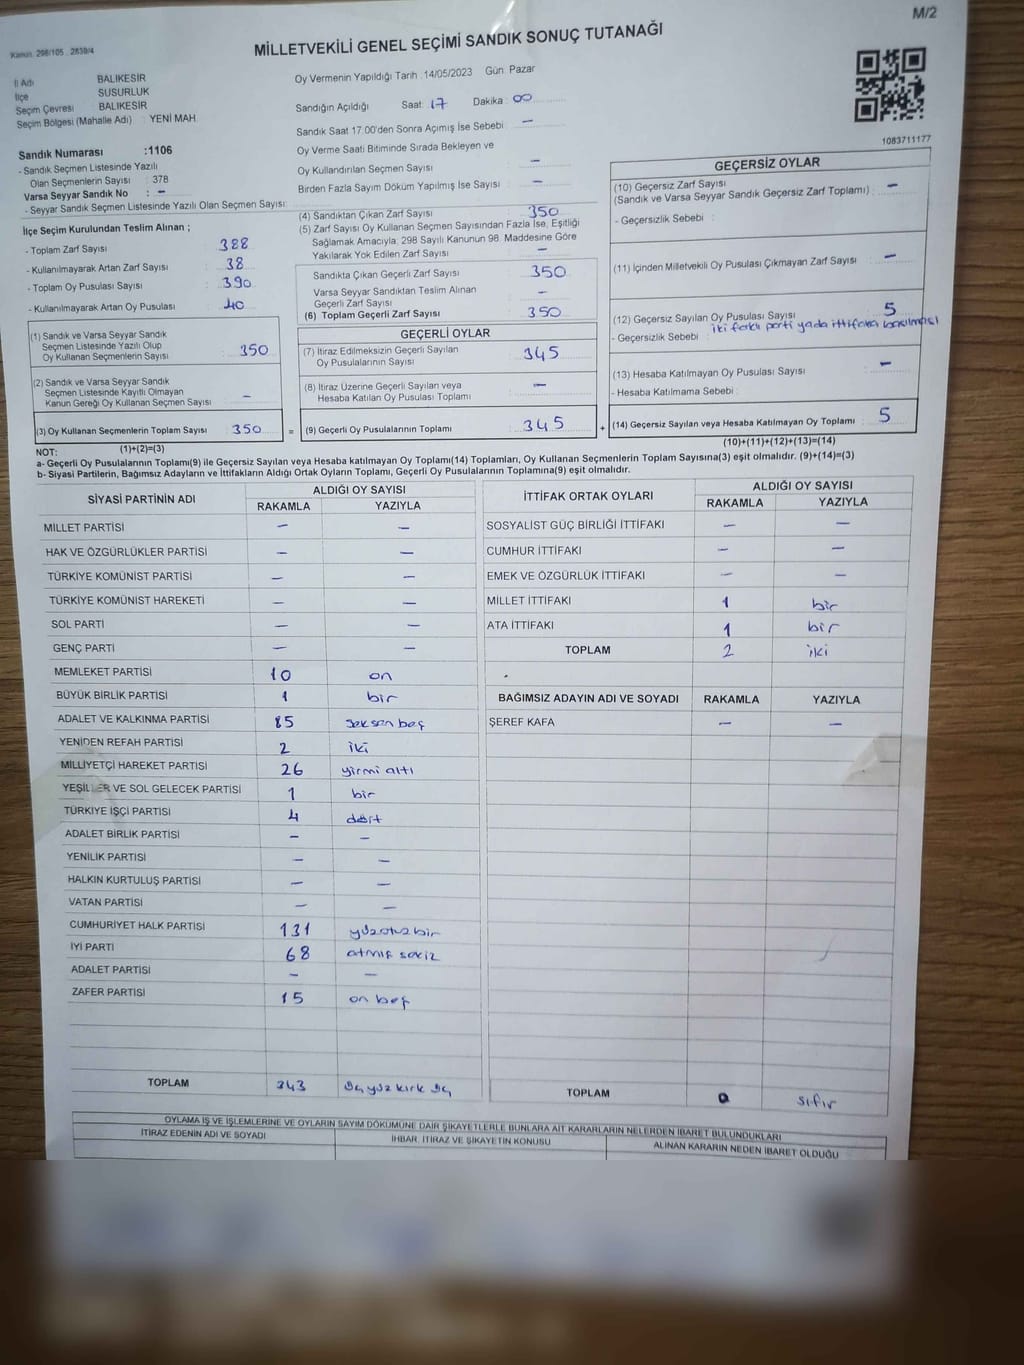 M/2
Kanun. 298/105 . 2839/4
MİLLETVEKİLİ GENEL SEÇİMİ SANDIK SONUÇ TUTANAĞI
İl Adı BALIKESİR
İlçe SUSURLUK
Seçim Çevresi BALIKESİR
Seçim Bölgesi (Mahalle Adı) : YENİ MAH
Oy Vermenin Yapıldığı Tarih : 14/05/2023 Gün: Pazar
Sandığın Açıldığı Saat: 17 Dakika : 00
Sandık Saat 17.00'den Sonra Açımış İse Sebebi : –
Oy Verme Saati Bitiminde Sırada Bekleyen ve
Oy Kullandırılan Seçmen Sayısı : –
Birden Fazla Sayım Döküm Yapılmış İse Sayısı : –
1083711177
Sandık Numarası :1106
- Sandık Seçmen Listesinde Yazılı
Olan Seçmenlerin Sayısı : 378
Varsa Seyyar Sandık No : –
- Seyyar Sandık Seçmen Listesinde Yazılı Olan Seçmen Sayısı:
İlçe Seçim Kurulundan Teslim Alınan ;
- Toplam Zarf Sayısı : 388
- Kullanılmayarak Artan Zarf Sayısı : 38
- Toplam Oy Pusulası Sayısı : 390
- Kullanılmayarak Artan Oy Pusulası : 40
(1) Sandık ve Varsa Seyyar Sandık
Seçmen Listesinde Yazılı Olup
Oy Kullanan Seçmenlerin Sayısı : 350
(2) Sandık ve Varsa Seyyar Sandık
Seçmen Listesinde Kayıtlı Olmayan
Kanun Gereği Oy Kullanan Seçmen Sayısı : –
(3) Oy Kullanan Seçmenlerin Toplam Sayısı : 350 =
(1)+(2)=(3)
(4) Sandıktan Çıkan Zarf Sayısı : 350
(5) Zarf Sayısı Oy Kullanan Seçmen Sayısından Fazla İse, Eşitliği
Sağlamak Amacıyla; 298 Sayılı Kanunun 98. Maddesine Göre
Yakılarak Yok Edilen Zarf Sayısı : –
Sandıkta Çıkan Geçerli Zarf Sayısı : 350
Varsa Seyyar Sandıktan Teslim Alınan
Geçerli Zarf Sayısı : –
(6) Toplam Geçerli Zarf Sayısı : 350
GEÇERLİ OYLAR
(7) İtiraz Edilmeksizin Geçerli Sayılan
Oy Pusulalarının Sayısı : 345
(8) İtiraz Üzerine Geçerli Sayılan veya
Hesaba Katılan Oy Pusulası Toplamı : –
(9) Geçerli Oy Pusulalarının Toplamı : 345 +
GEÇERSİZ OYLAR
(10) Geçersiz Zarf Sayısı
(Sandık ve Varsa Seyyar Sandık Geçersiz Zarf Toplamı) : –
- Geçersizlik Sebebi :
(11) İçinden Milletvekili Oy Pusulası Çıkmayan Zarf Sayısı : –
(12) Geçersiz Sayılan Oy Pusulası Sayısı : 5
- Geçersizlik Sebebi : iki farklı parti yada ittifaka basılması
(13) Hesaba Katılmayan Oy Pusulası Sayısı : –
- Hesaba Katılmama Sebebi :
(14) Geçersiz Sayılan veya Hesaba Katılmayan Oy Toplamı : 5
(10)+(11)+(12)+(13)=(14)
NOT:
a- Geçerli Oy Pusulalarının Toplamı(9) ile Geçersiz Sayılan veya Hesaba katılmayan Oy Toplamı(14) Toplamları, Oy Kullanan Seçmenlerin Toplam Sayısına(3) eşit olmalıdır. (9)+(14)=(3)
b- Siyasi Partilerin, Bağımsız Adayların ve İttifakların Aldığı Ortak Oyların Toplamı, Geçerli Oy Pusulalarının Toplamına(9) eşit olmalıdır.
SİYASİ PARTİNİN ADI ALDIĞI OY SAYISI
RAKAMLA YAZIYLA
MİLLET PARTİSİ – –
HAK VE ÖZGÜRLÜKLER PARTİSİ – –
TÜRKİYE KOMÜNİST PARTİSİ – –
TÜRKİYE KOMÜNİST HAREKETİ – –
SOL PARTİ – –
GENÇ PARTİ – –
MEMLEKET PARTİSİ 10 on
BÜYÜK BİRLİK PARTİSİ 1 bir
ADALET VE KALKINMA PARTİSİ 85 seksen beş
YENİDEN REFAH PARTİSİ 2 iki
MİLLİYETÇİ HAREKET PARTİSİ 26 yirmi altı
YEŞİLLER VE SOL GELECEK PARTİSİ 1 bir
TÜRKİYE İŞÇİ PARTİSİ 4 dört
ADALET BİRLİK PARTİSİ – –
YENİLİK PARTİSİ – –
HALKIN KURTULUŞ PARTİSİ – –
VATAN PARTİSİ – –
CUMHURİYET HALK PARTİSİ 131 yüzotuzbir
İYİ PARTİ 68 atmış sekiz
ADALET PARTİSİ – –
ZAFER PARTİSİ 15 on beş
TOPLAM 343 üç yüz kırk üç
İTTİFAK ORTAK OYLARI ALDIĞI OY SAYISI
RAKAMLA YAZIYLA
SOSYALİST GÜÇ BİRLİĞİ İTTİFAKI – –
CUMHUR İTTİFAKI – –
EMEK VE ÖZGÜRLÜK İTTİFAKI – –
MİLLET İTTİFAKI 1 bir
ATA İTTİFAKI 1 bir
TOPLAM 2 iki
BAĞIMSIZ ADAYIN ADI VE SOYADI RAKAMLA YAZIYLA
ŞEREF KAFA – –
TOPLAM 0 sıfır
OYLAMA İŞ VE İŞLEMLERİNE VE OYLARIN SAYIM DÖKÜMÜNE DAİR ŞİKAYETLERLE BUNLARA AİT KARARLARIN NELERDEN İBARET BULUNDUKLARI
İTİRAZ EDENİN ADI VE SOYADI İHBAR, İTİRAZ VE ŞİKAYETİN KONUSU ALINAN KARARIN NEDEN İBARET OLDUĞU